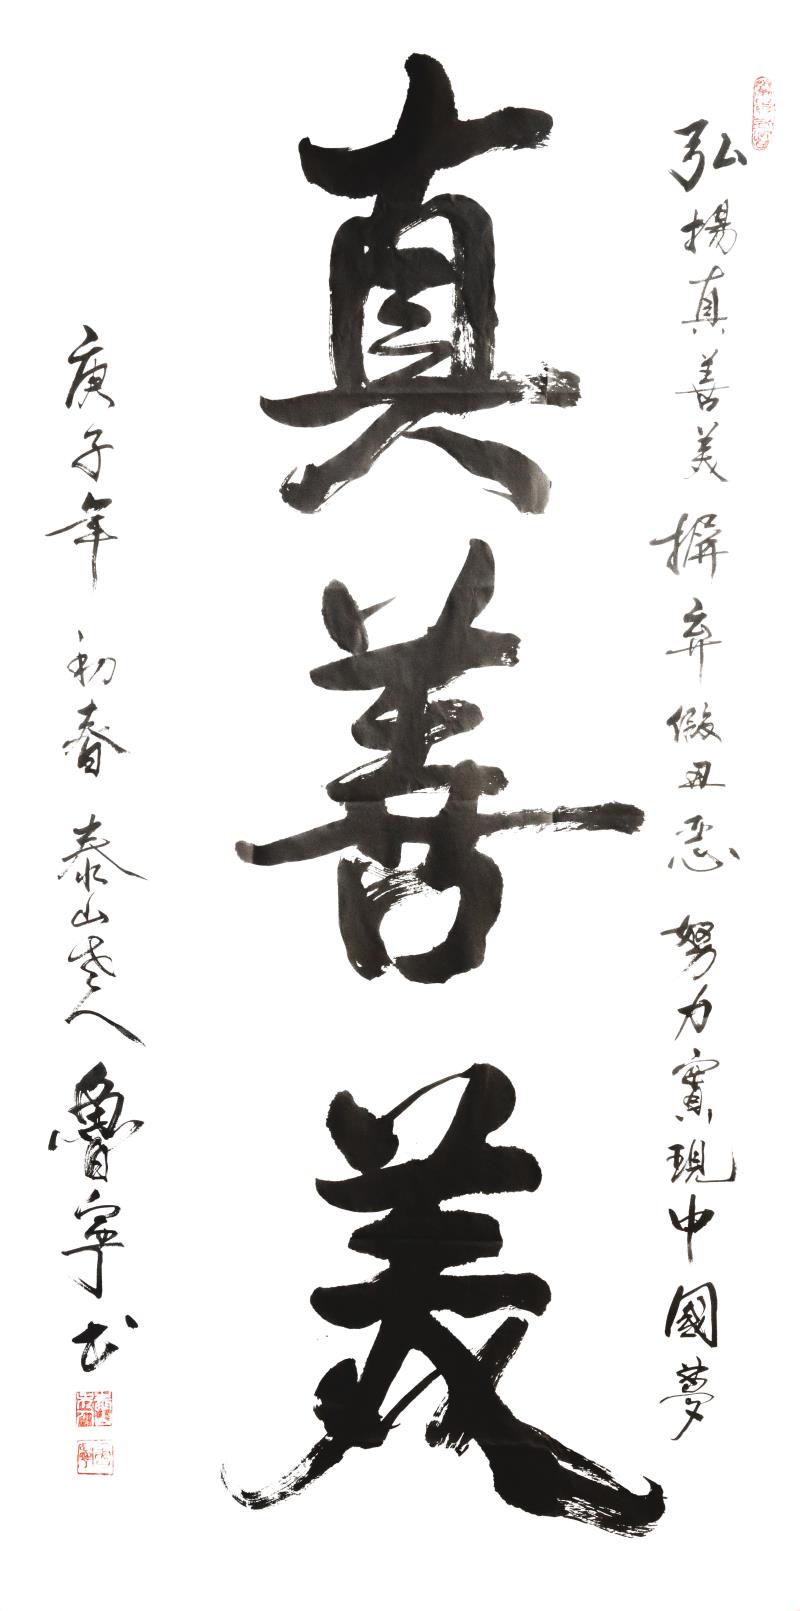 弘揚真善美 摒弃假丑惡 努力實現中國夢
真善美
庚子年 初春 泰山老人 魯寧书